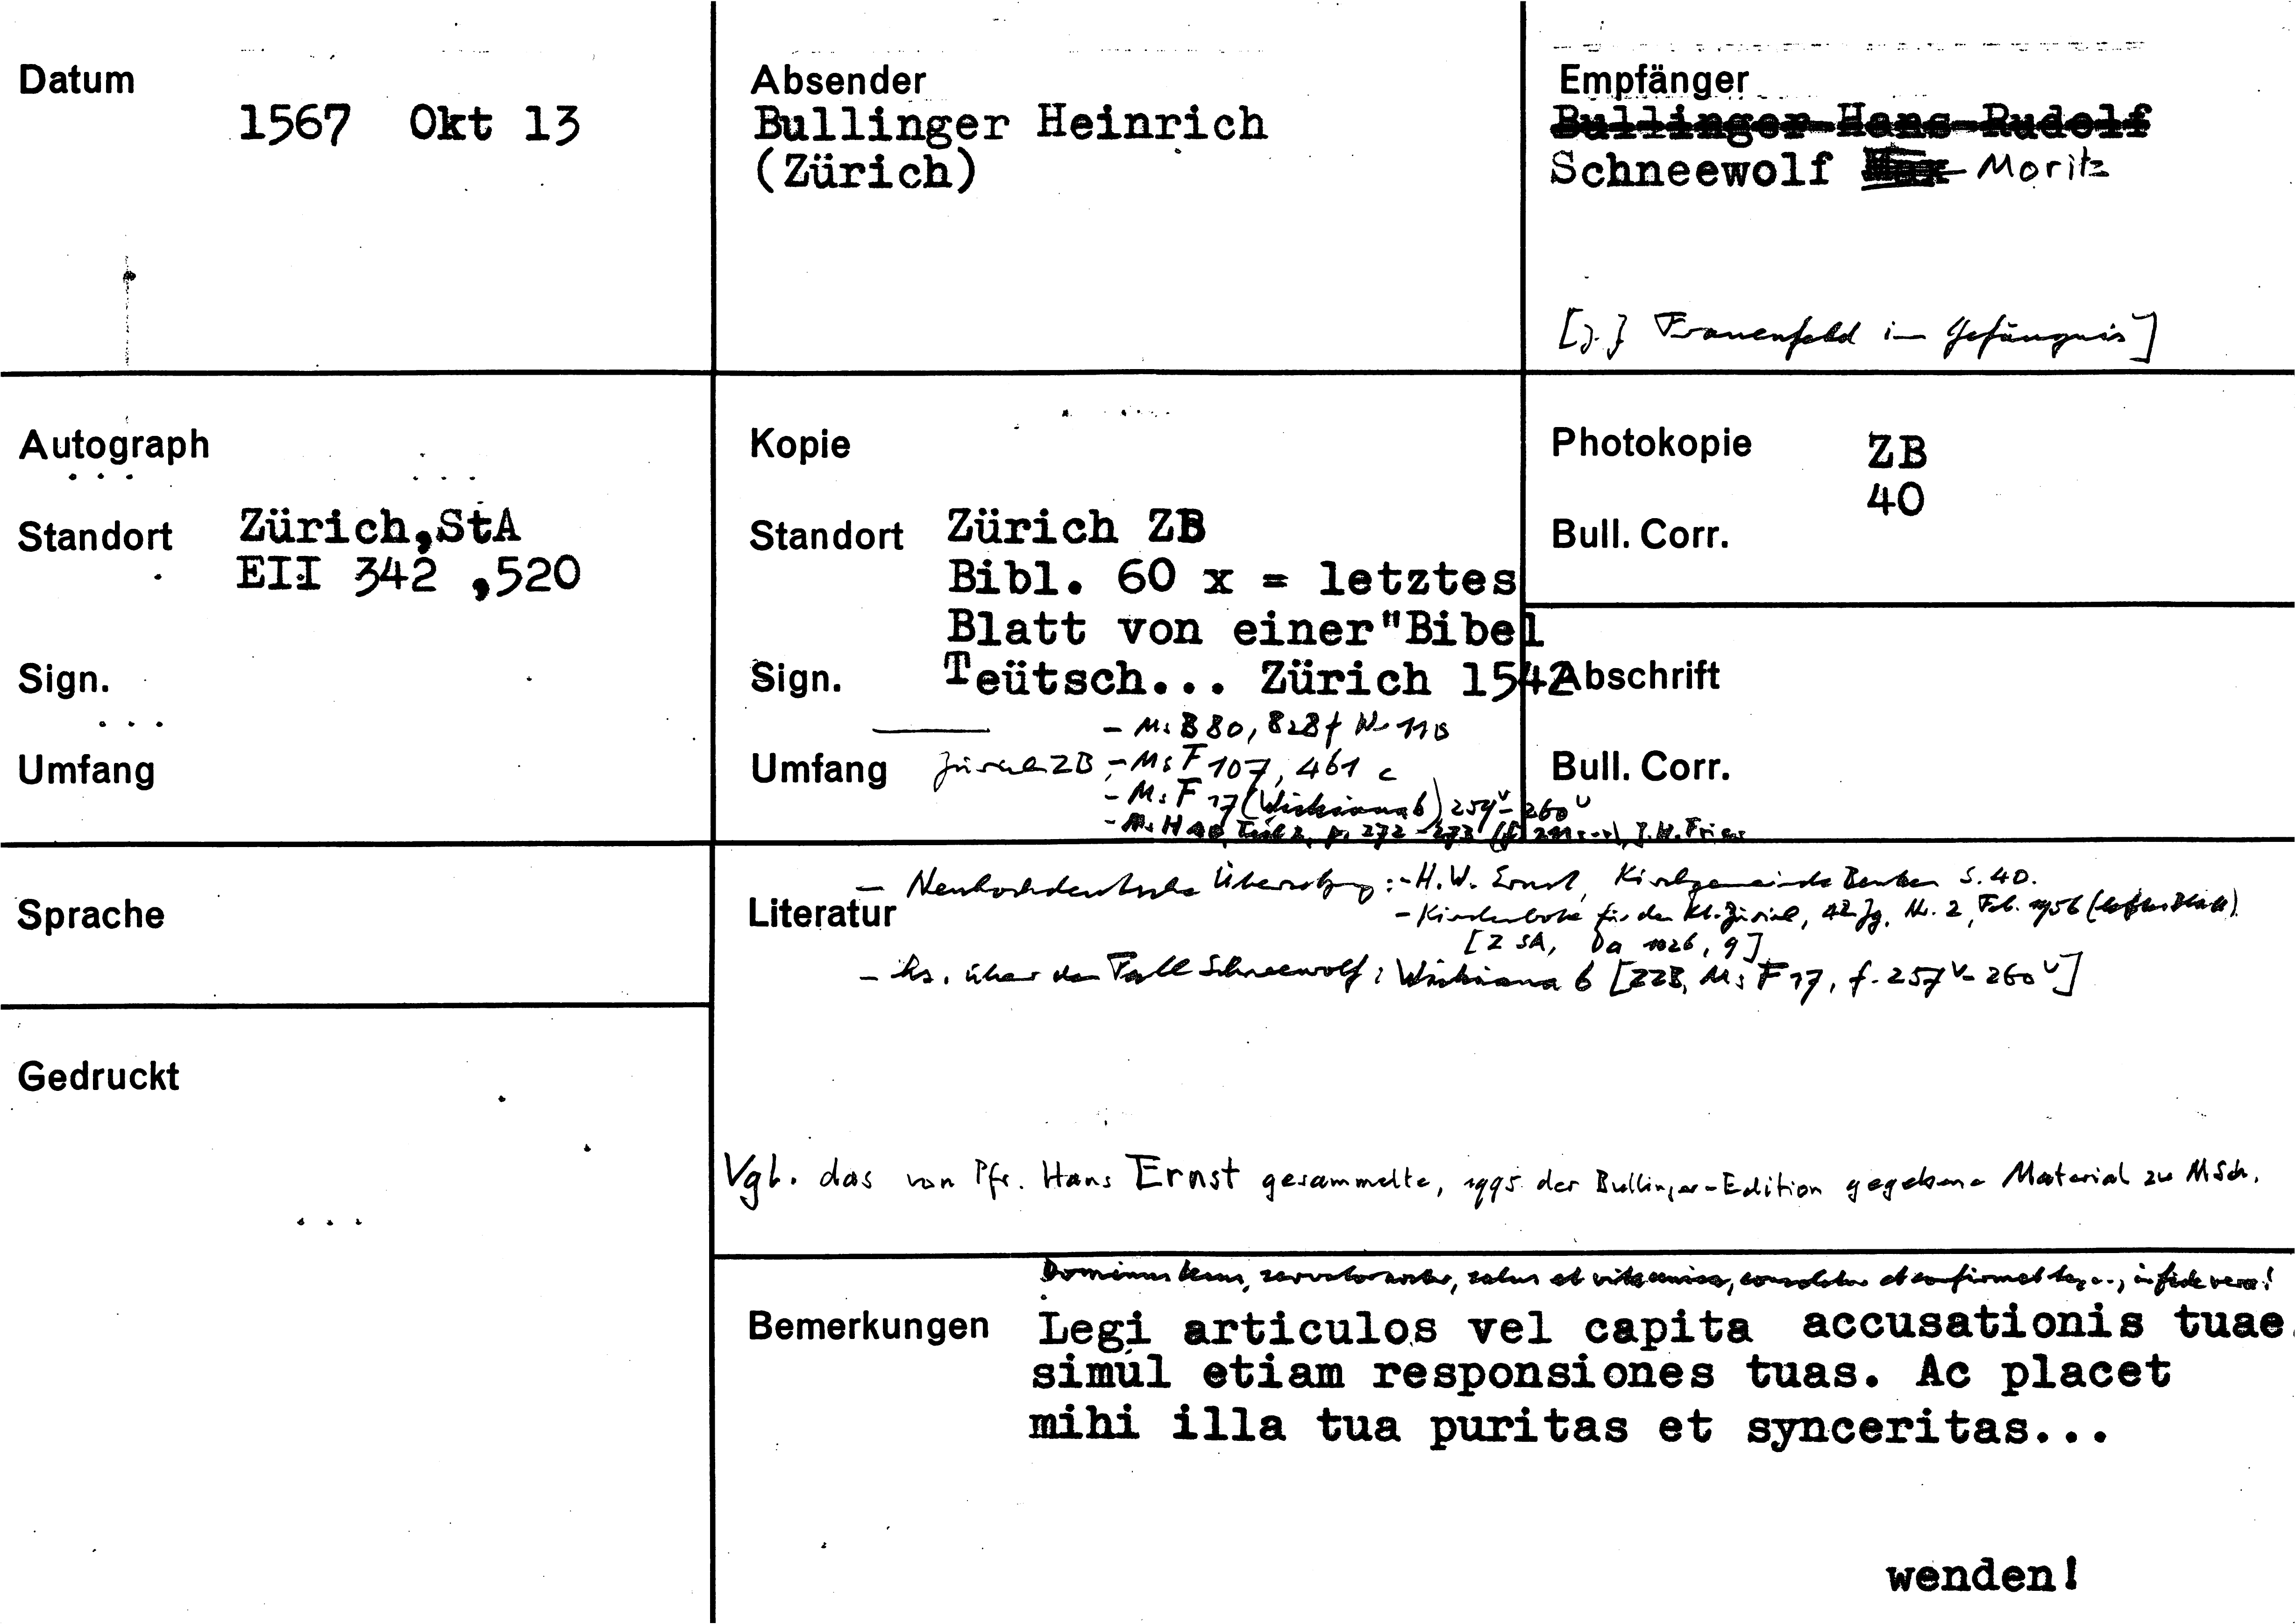 Datum
1567 Okt 13
Absender
Bullinger Heinrich
(Zürich)
Empfänger
Bullinger Hans Rudolf
Schneewolf Max Moritz
[z. Z. Frauenfeld im Gefängnis]
Autograph
Standort Zürich,StA
EII 342 ,520
Sign.
Umfang
Kopie
Standort Zürich ZB
Bibl. 60 x = letztes
Blatt von einer"Bibel
Sign. Teütsch... Zürich 1542
- Ms B 80, 828f Nr 118
Umfang Zürich ZB - Ms F 107, 461 c
- Ms F 17 (Wickiana 6) 259v-260v
- Ms H 40, Teil 2, p. 272-273 J.H. Fries
Photokopie ZB
40
Bull. Corr.
Abschrift
Bull. Corr.
Sprache
Gedruckt
Literatur
- Neuhochdeutsche Übersetzung: - H.W. Ernst, Kirchgemeinde Benken S. 40.
- Kirchenbote für den Kt. Zürich, 42. Jg. Nr. 2, Feb. 1956 (letztes Blatt)
[Z SA, Da 1026, 9]
- Hs. über den Fall Schneewolf: Wickiana 6 [ZZB, Ms F 17, f. 257v-260v]
Vgl. das von Pfr. Hans Ernst gesammelte, 1995 der Bullinger-Edition gegebene Material zu MSch.
Bemerkungen
Dominus Iesus, servator noster, salus et vita unica, consoletur et confirmet te, ..., in fide vera!
Legi articulos vel capita accusationis tuae
simul etiam responsiones tuas. Ac placet
mihi illa tua puritas et synceritas...
wenden!